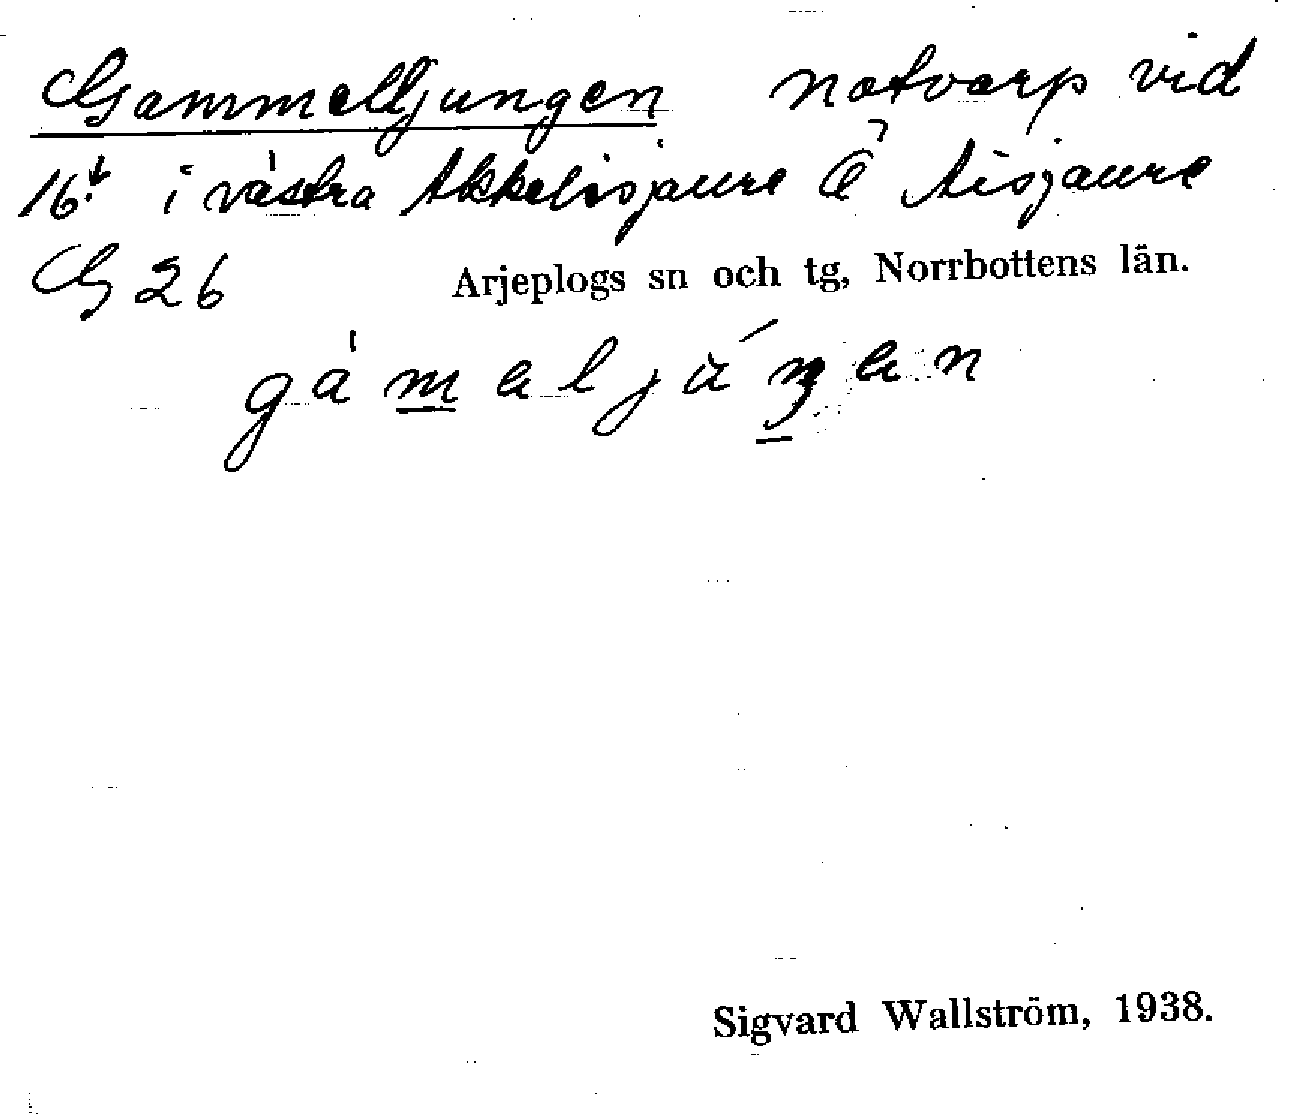 Gammelljungen notvarp vid
16. i västra Akkelisjaure Aisjaure
G 26 Arjeplogs sn och tg, Norrbottens län.
Sigvard Wallström, 1938.